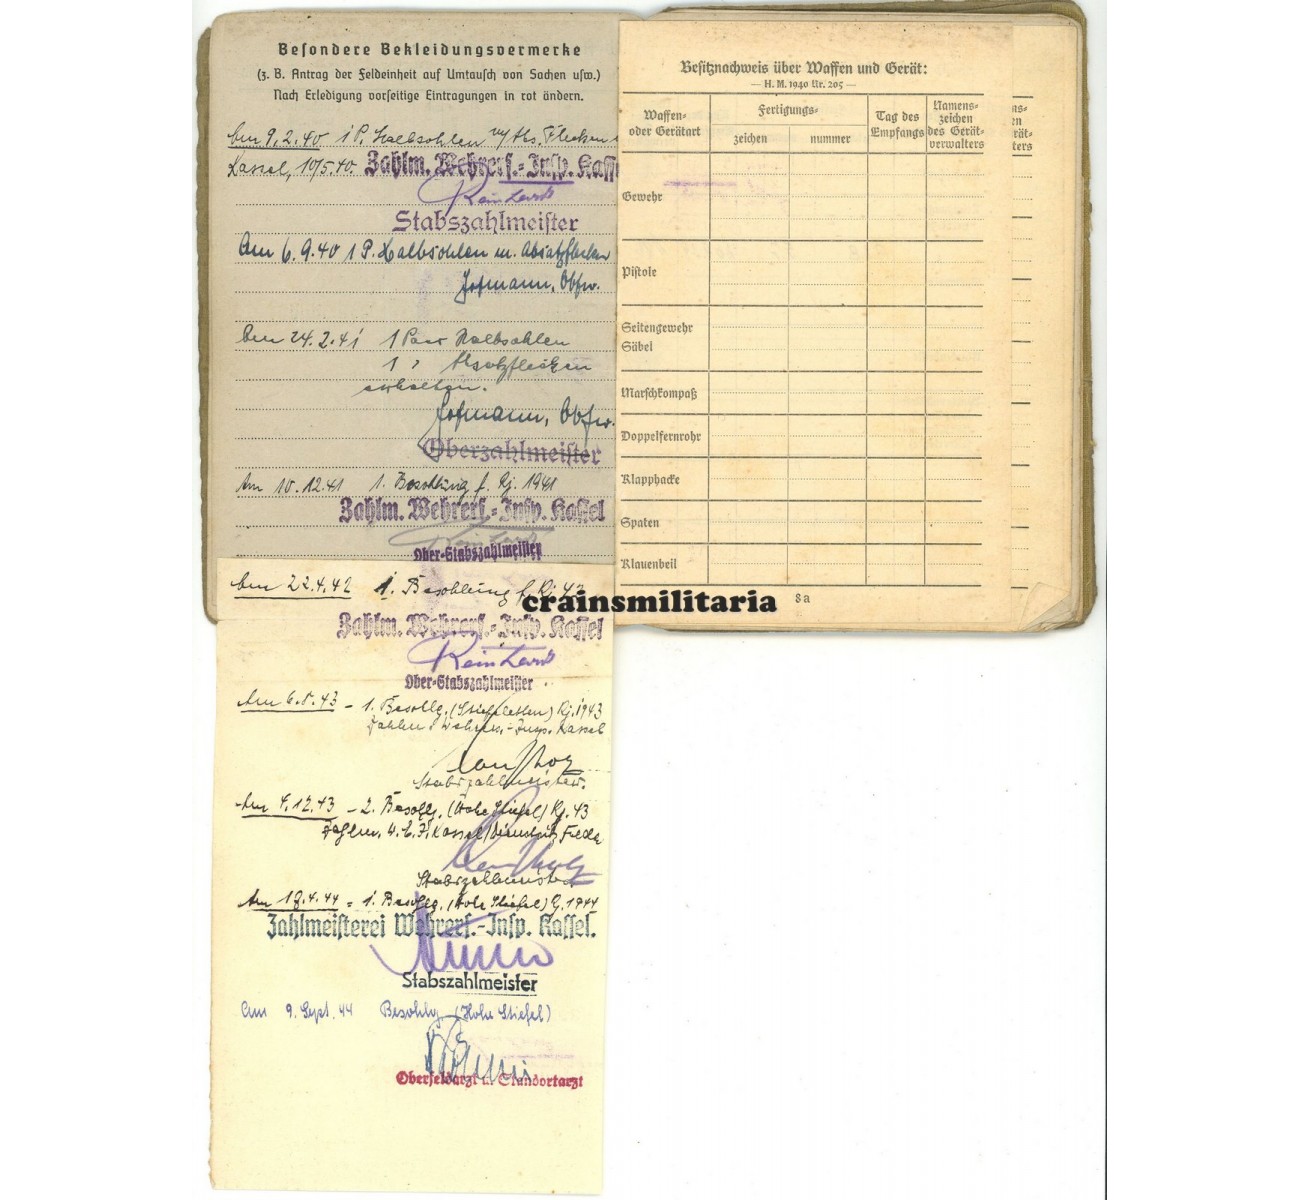 Besondere Bekleidungsvermerke
(z. B. Antrag der Feldeinheit auf Umtausch von Sachen usw.)
Nach Erledigung vorseitige Eintragungen in rot ändern.
Am 9.2.40 1 P. Halbsohlen
Kassel, 10/5.40. Zahlm. Wehrers.-Insp. Kassel
Stabszahlmeister
Am 6.9.40 1 P. Halbsohlen m. Absatzflecken
Hofmann, Obfw.
Am 24.2.41 1 Paar Halbsohlen
1 " Absatzflecken
erhalten.
Hofmann, Obfw.
Oberzahlmeister
Am 10.12.41 1. Besohlung f. Rj. 1941
Zahlm. Wehrers.-Insp. Kassel
Ober-Stabszahlmeister
Am 22.4.42 1. Besohlung f. Rj. 42
Zahlm. Wehrers.-Insp. Kassel
Ober-Stabszahlmeister
Am 6.8.43 - 1. Besohlg. Rj. 1943
Zahlm. Wehrers.-Insp. Kassel
Stabszahlmeister.
Am 4.12.43 - 2. Besohlg. (Hohe Stiefel) Rj. 43
Kassel
Stabszahlmeister
Am 18.4.44 = 1. Besohlg. (Hohe Stiefel) Rj. 1944
Zahlmeisterei Wehrers.-Insp. Kassel.
Stabszahlmeister
Am 9. Sept. 44 Besohlg (Hohe Stiefel)
Oberfeldarzt u. Standortarzt
Besitznachweis über Waffen und Gerät:
— H. M. 1940 Nr. 205 —
Waffen- oder Gerätart
Fertigungs-
zeichen
nummer
Tag des Empfangs
Namens- zeichen des Gerät- verwalters
Gewehr
Pistole
Seitengewehr
Säbel
Marschkompaß
Doppelfernrohr
Klapphacke
Spaten
Klauenbeil
8a
crainsmilitaria